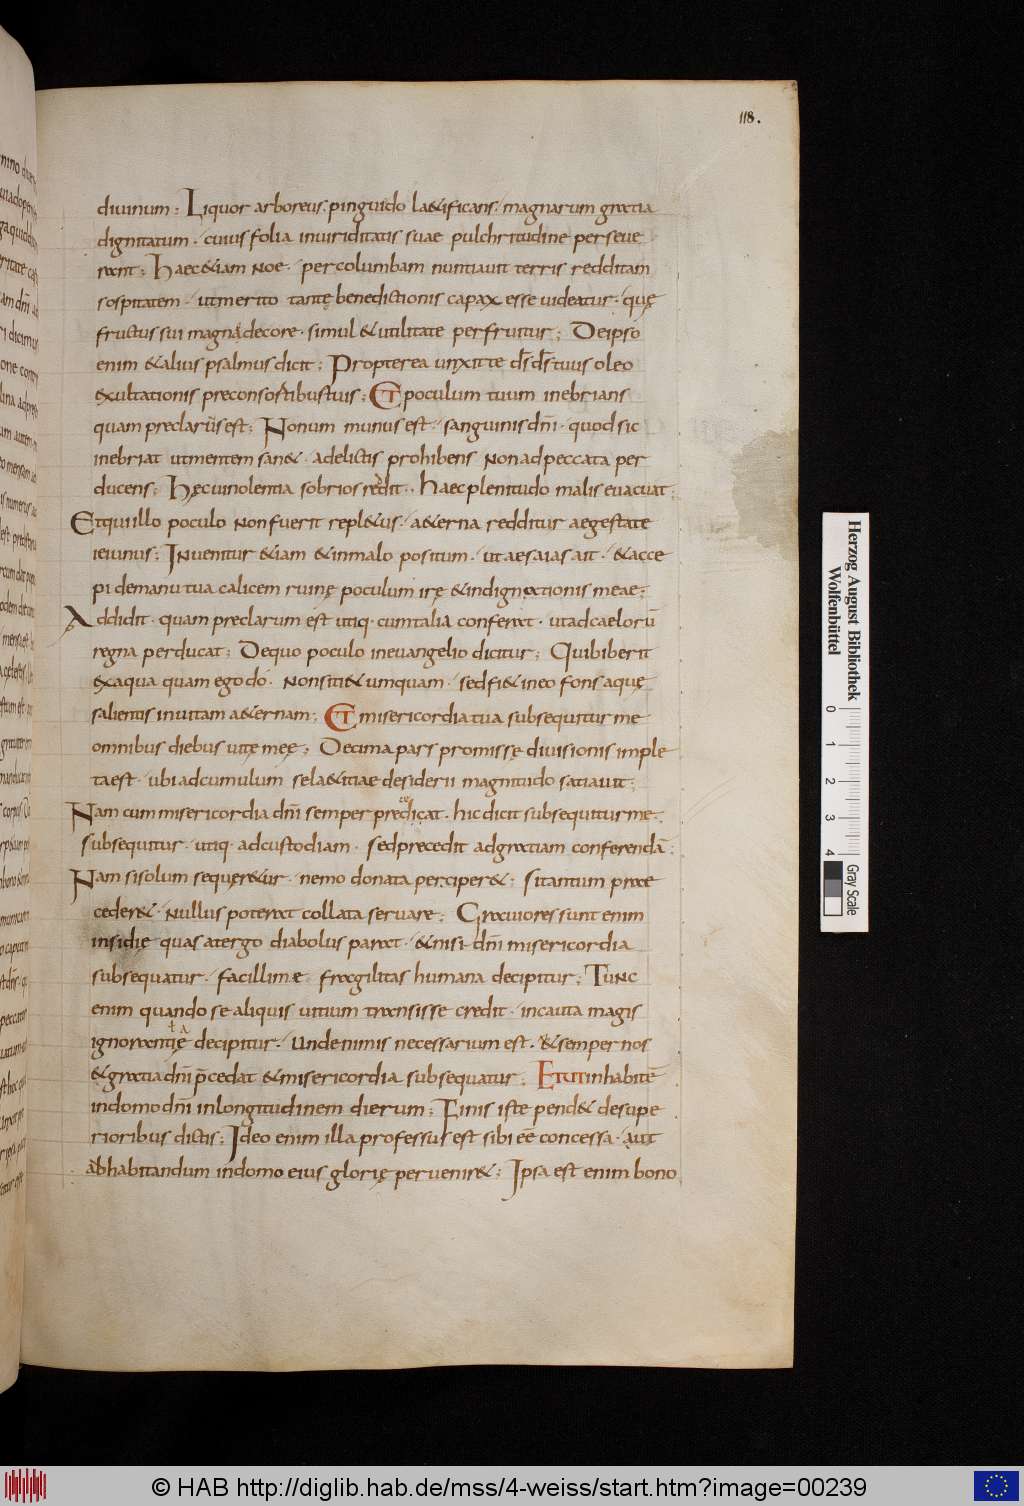 118.
diuinum; Liquor arboreus. pinguido lætificans. magnarum gratia
dignitatum. cuius folia inuiriditatis suae pulchritudine perseue
rant; Haec &iam Noe. percolumbam nuntiauit terris redditam
sospitatem. utmerito tantę benedictionis capax esse uideatur. quę
fructus sui magna decore. simul & utilitate perfruitur; Deipso
enim & alius psalmus dicit; Propterea unxit te d̄s d̄s tuus oleo
exultationis preconsortibustuis; ET poculum tuum inebrians
quam preclarūs est; Nonum munus est. sanguinis dn̄i. quod sic
inebriat utmentem san&. adelictis prohibens Nonadpeccata per
ducens; Hęc uinolentia sobrios reddit. haec plenitudo malis euacuat;
Et qui illo poculo Non fuerit repl&us. a&erna redditur aegestate
ieiunus; INuenitur &iam & inmalo positum. ut aesaias ait. & acce
pi demanu tua calicem ruinę poculum irę & indignationis meae;
Addidit. quam preclarum est utiq. cumtalia conferat. utadcaelorū
regna perducat; Dequo poculo ineuangelio dicitur; Quibiberit
exaqua quam ego do. Nonsiti& umquam. sedfi& ineo fons aquę
salientis inuitam a&ernam; ET misericordia tua subsequitur me
omnibus diebus uitę meę; Decima pars promissę diuisionis imple
ta est. ubi adcumulum sela&itiae desiderii magnitudo satiauit;
Nam cum misericordia dn̄i semper predicat. hic dicit subsequitur me.
subsequitur. utiq. adcustodiam. sedprecedit adgratiam conferendā;
Nam sisolum sequęr&ur. nemo donata perciper&; sitantum prae
ceder&. Nullus poterat collata seruare; Grauiores sunt enim
insidię quas atergo diabolus parat. &nisi dn̄i misericordia
subsequatur. facillime fragilitas humana decipitur; TuNc
enim quando se aliquis uitium transisse credit. incauta magis
ignorantię decipitur. Unde nimis necessarium est. & semper nos
& gratia dn̄i p̄cedat & misericordia subsequatur; ETUT inhabitē
indomo dn̄i inlongitudinem dierum; Finis iste pend& desupe
rioribus dictis; Ideo enim illa professus est sibi eē concessa. aut
abhabitandum indomo eius glorię peruenir&; Ipsa est enim bono
Herzog August Bibliothek
Wolfenbüttel
0 1 2 3 4
Gray Scale
© HAB http://diglib.hab.de/mss/4-weiss/start.htm?image=00239